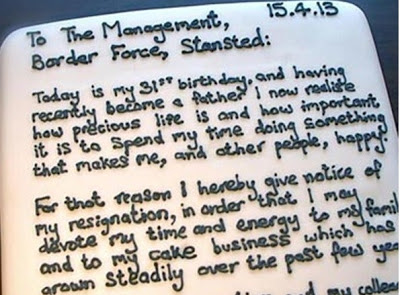 15.4.13
To The Management,
Border Force, Stansted:
Today is my 31st birthday, and having
recently become a father I now realise
how precious life is and how important
it is to spend my time doing something
that makes me, and other people, happy
For that reason I hereby give notice of
my resignation, in order that I may
devote my time and energy to my famil
and to my cake business which has
grown steadily over the past few yea
and my collea